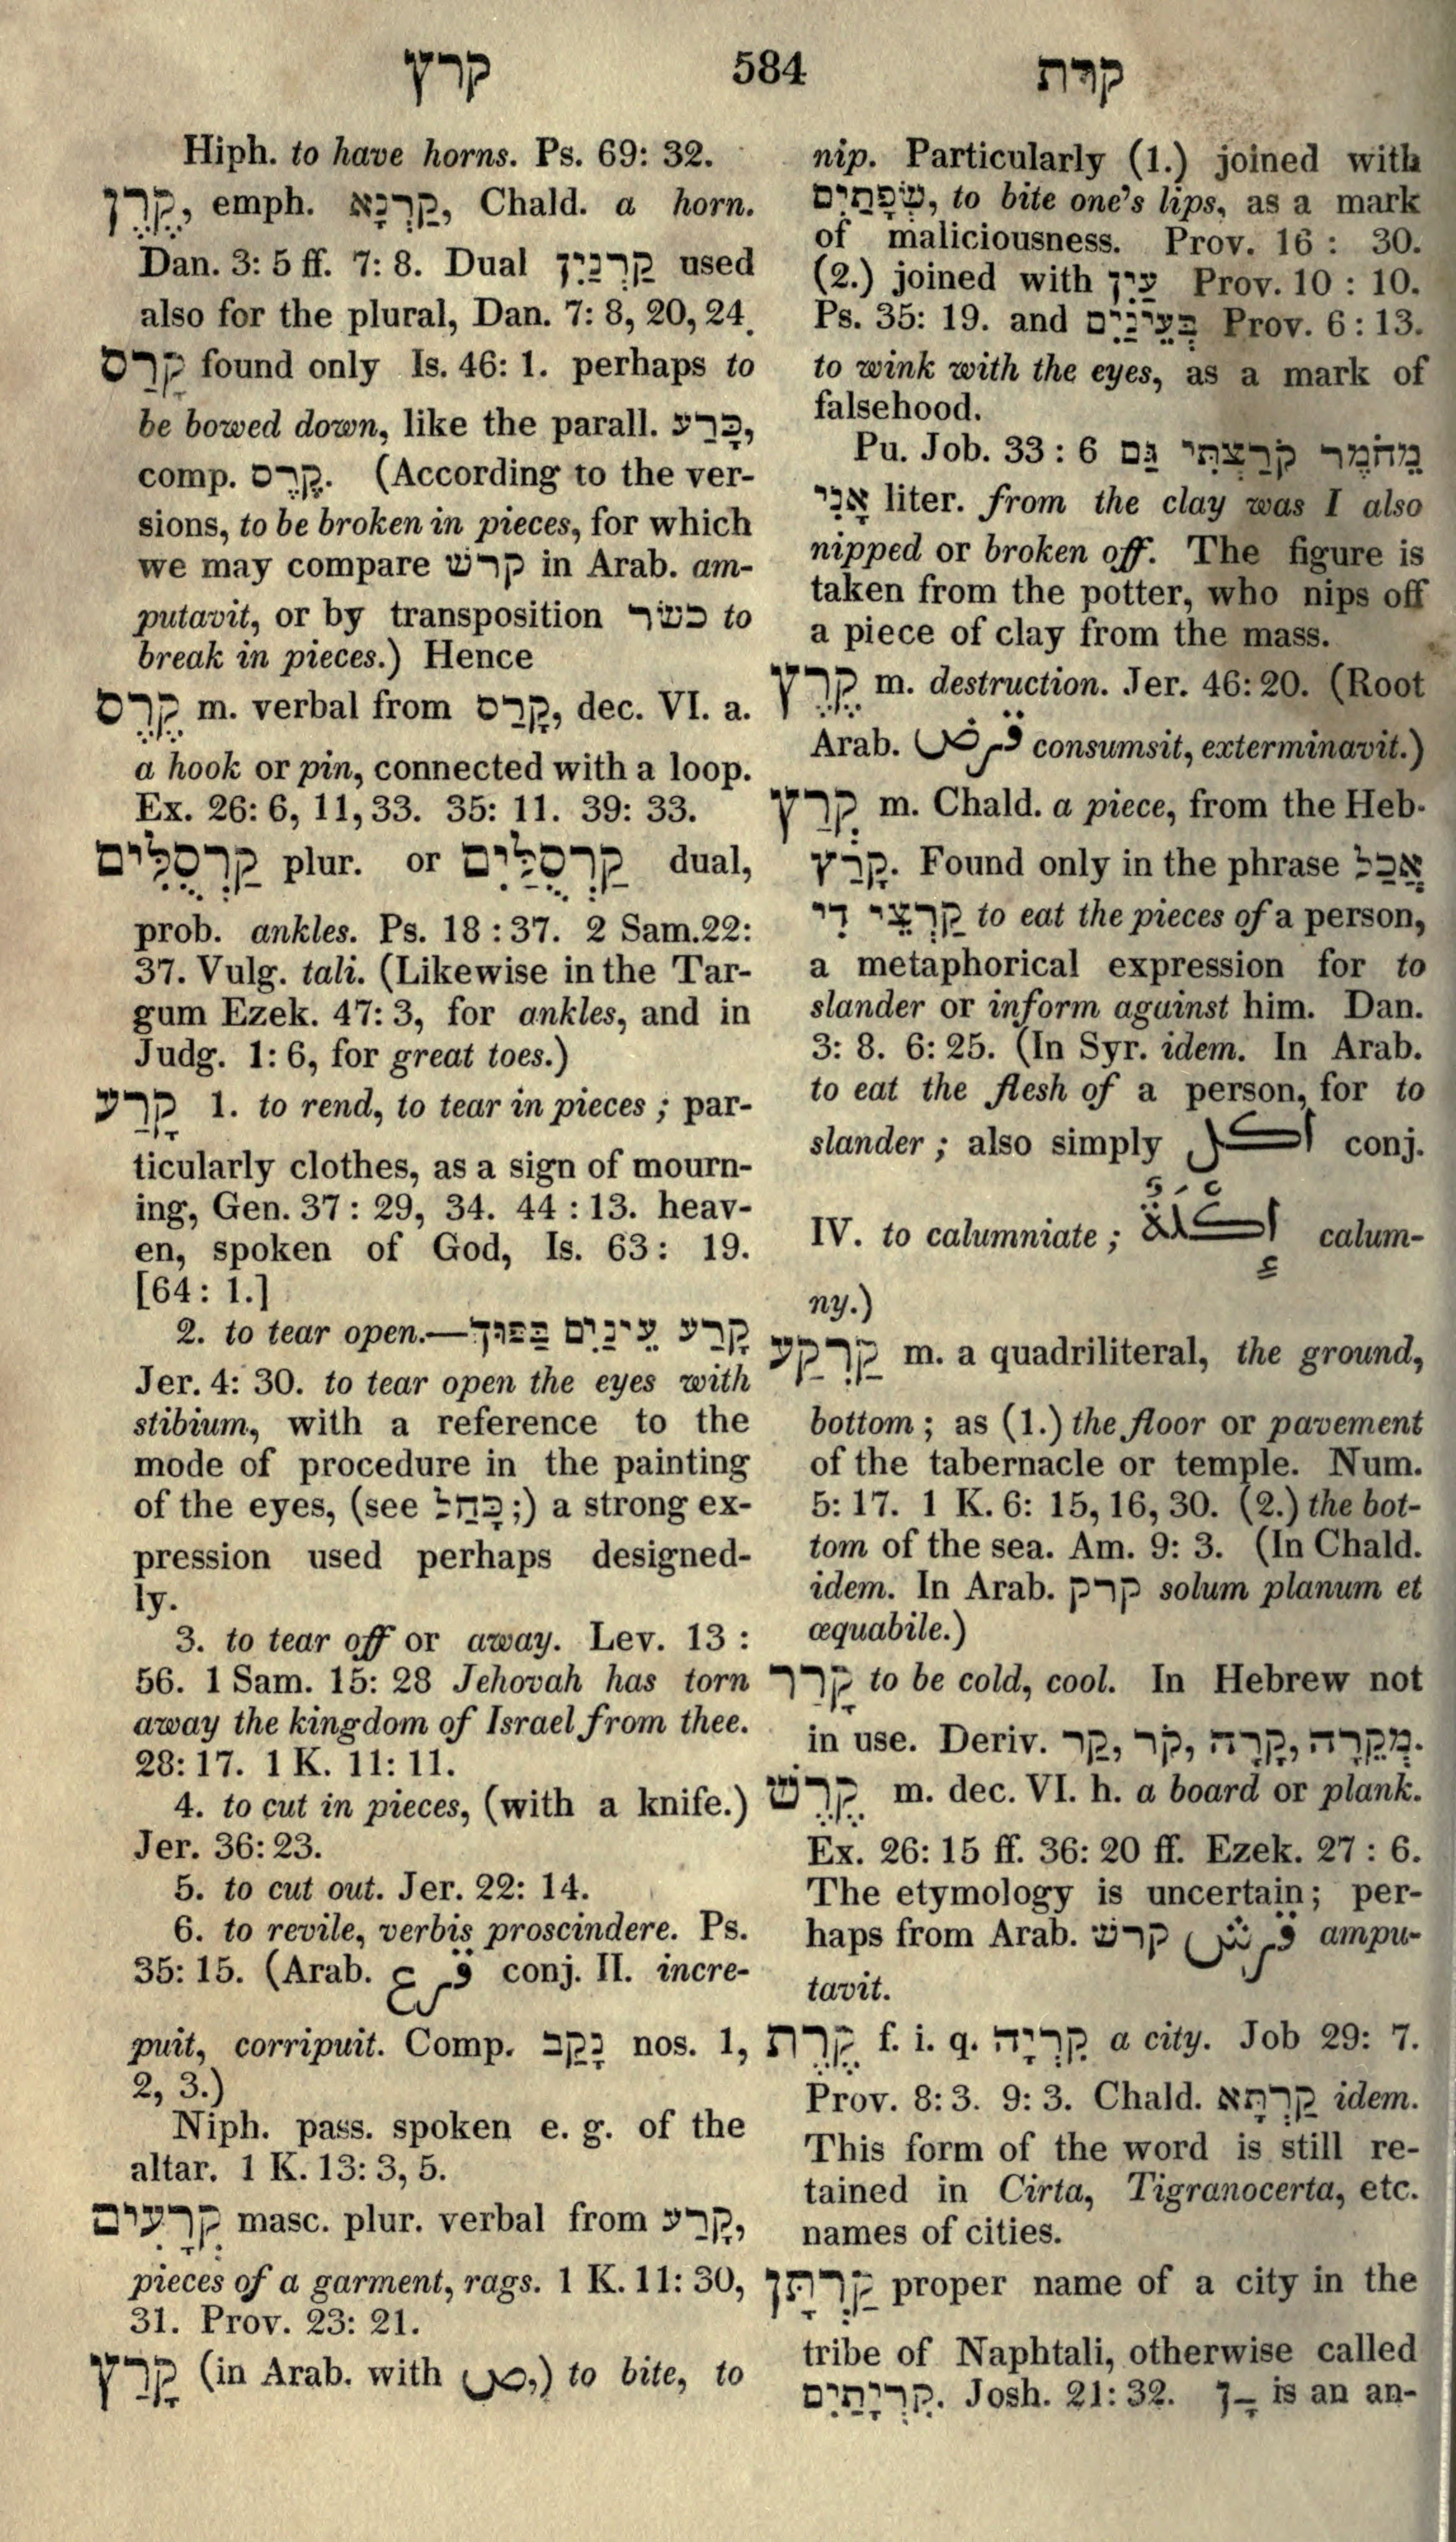 קרץ 584 קרת
Hiph. to have horns. Ps. 69: 32.
קֶרֶן, emph. קַרְנָא, Chald. a horn.
Dan. 3: 5 ff. 7: 8. Dual קַרְנַיִן used
also for the plural, Dan. 7: 8, 20, 24.
קָרַס found only Is. 46: 1. perhaps to
be bowed down, like the parall. כָּרַע,
comp. קֶרֶס. (According to the ver-
sions, to be broken in pieces, for which
we may compare קרש in Arab. am-
putavit, or by transposition כשר to
break in pieces.) Hence
קֶרֶס m. verbal from קָרַס, dec. VI. a.
a hook or pin, connected with a loop.
Ex. 26: 6, 11, 33. 35: 11. 39: 33.
קַרְסֻלִּים plur. or קַרְסֻלַּיִם dual,
prob. ankles. Ps. 18 : 37. 2 Sam. 22:
37. Vulg. tali. (Likewise in the Tar-
gum Ezek. 47: 3, for ankles, and in
Judg. 1: 6, for great toes.)
קָרַע 1. to rend, to tear in pieces ; par-
ticularly clothes, as a sign of mourn-
ing, Gen. 37 : 29, 34. 44 : 13. heav-
en, spoken of God, Is. 63: 19.
[64: 1.]
2. to tear open.—קָרַע עֵינַיִם בַּפּוּךְ
Jer. 4: 30. to tear open the eyes with
stibium, with a reference to the
mode of procedure in the painting
of the eyes, (see כָּחַל ;) a strong ex-
pression used perhaps designed-
ly.
3. to tear off or away. Lev. 13 :
56. 1 Sam. 15: 28 Jehovah has torn
away the kingdom of Israel from thee.
28: 17. 1 K. 11: 11.
4. to cut in pieces, (with a knife.)
Jer. 36: 23.
5. to cut out. Jer. 22: 14.
6. to revile, verbis proscindere. Ps.
35: 15. (Arab. قرع conj. II. incre-
puit, corripuit. Comp. נָקַב nos. 1,
2, 3.)
Niph. pass. spoken e. g. of the
altar. 1 K. 13: 3, 5.
קְרָעִים masc. plur. verbal from קָרַע,
pieces of a garment, rags. 1 K. 11: 30,
31. Prov. 23: 21.
קָרַץ (in Arab. with ص,) to bite, to
nip. Particularly (1.) joined with
שְׂפָתַיִם, to bite one's lips, as a mark
of maliciousness. Prov. 16 : 30.
(2.) joined with עַיִן Prov. 10 : 10.
Ps. 35: 19. and בְּעֵינַיִם Prov. 6 : 13.
to wink with the eyes, as a mark of
falsehood.
Pu. Job. 33 : 6 מֵחֹמֶר קֹרַצְתִּי גַם
אָנִי liter. from the clay was I also
nipped or broken off. The figure is
taken from the potter, who nips off
a piece of clay from the mass.
קֶרֶץ m. destruction. Jer. 46: 20. (Root
Arab. قرض consumsit, exterminavit.)
קְרַץ m. Chald. a piece, from the Heb.
קָרַץ. Found only in the phrase אֲכַל
קַרְצֵי דִי to eat the pieces of a person,
a metaphorical expression for to
slander or inform against him. Dan.
3: 8. 6: 25. (In Syr. idem. In Arab.
to eat the flesh of a person, for to
slander ; also simply اكل conj.
IV. to calumniate ; إكلة calum-
ny.)
קַרְקַע m. a quadriliteral, the ground,
bottom ; as (1.) the floor or pavement
of the tabernacle or temple. Num.
5: 17. 1 K. 6: 15, 16, 30. (2.) the bot-
tom of the sea. Am. 9: 3. (In Chald.
idem. In Arab. קרק solum planum et
æquabile.)
קָרַר to be cold, cool. In Hebrew not
in use. Deriv. קַר, קֹר, קָרָה, מְקֵרָה.
קֶרֶשׁ m. dec. VI. h. a board or plank.
Ex. 26: 15 ff. 36: 20 ff. Ezek. 27 : 6.
The etymology is uncertain; per-
haps from Arab. קרש قرش ampu-
tavit.
קֶרֶת f. i. q. קִרְיָה a city. Job 29: 7.
Prov. 8: 3. 9: 3. Chald. קַרְתָּא idem.
This form of the word is still re-
tained in Cirta, Tigranocerta, etc.
names of cities.
קַרְתָּן proper name of a city in the
tribe of Naphtali, otherwise called
קִרְיָתַיִם. Josh. 21: 32. ־ָן is an an-